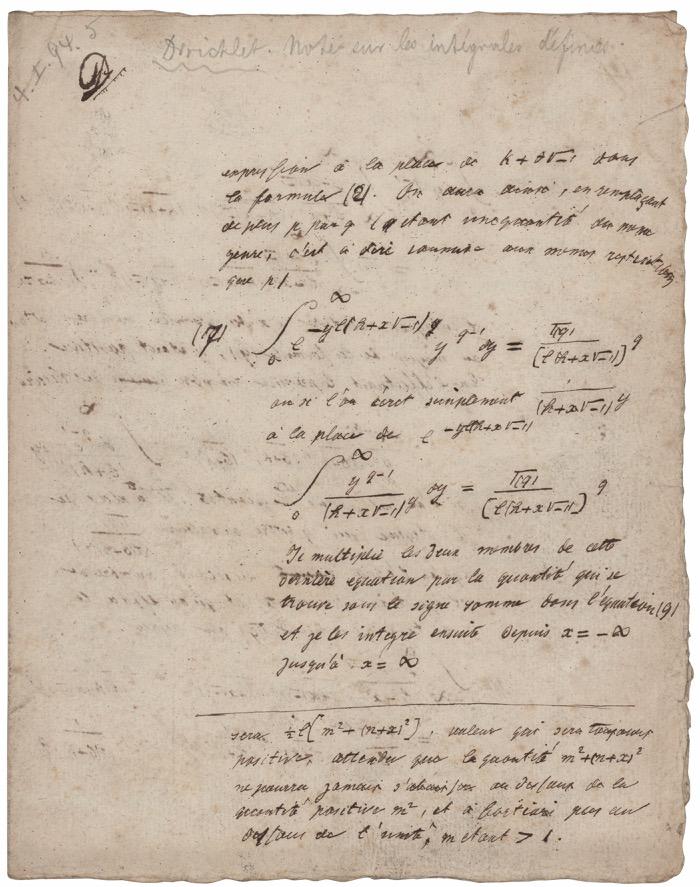 4. I. 94. 5
Dirichlet. Note sur les intégrales définies.
expression à la place de k + θ√-1 dans
la formule (2). On aura ainsi, en remplaçant
de plus p par q (q étant une quantité du même
genre, c'est à dire comme aux mêmes restrictions
que p).
(17) ∫₀^∞ e^{-yl(k+x√-1)} y^{q-1} dy = Γ(q) / [l(k+x√-1)]^q
ou si l'on écrit simplement 1/(k+x√-1)^y
à la place de e^{-yl(k+x√-1)}
∫₀^∞ y^{q-1} / (k+x√-1)^y dy = Γ(q) / [l(k+x√-1)]^q
Je multiplie les deux membres de cette
dernière equation par la quantité qui se
trouve sous le signe somme dans l'équation (9)
et je les integre ensuite depuis x = -∞
jusqu'à x = ∞
sera ½l(m²+(n+x)²), valeur qui sera toujours
positive, attendu que la quantité m²+(n+x)²
ne pourra jamais s'abaisser au dessous de la
quantité positive m², et à fortiori pas au
dessous de l'unité, m étant > 1.